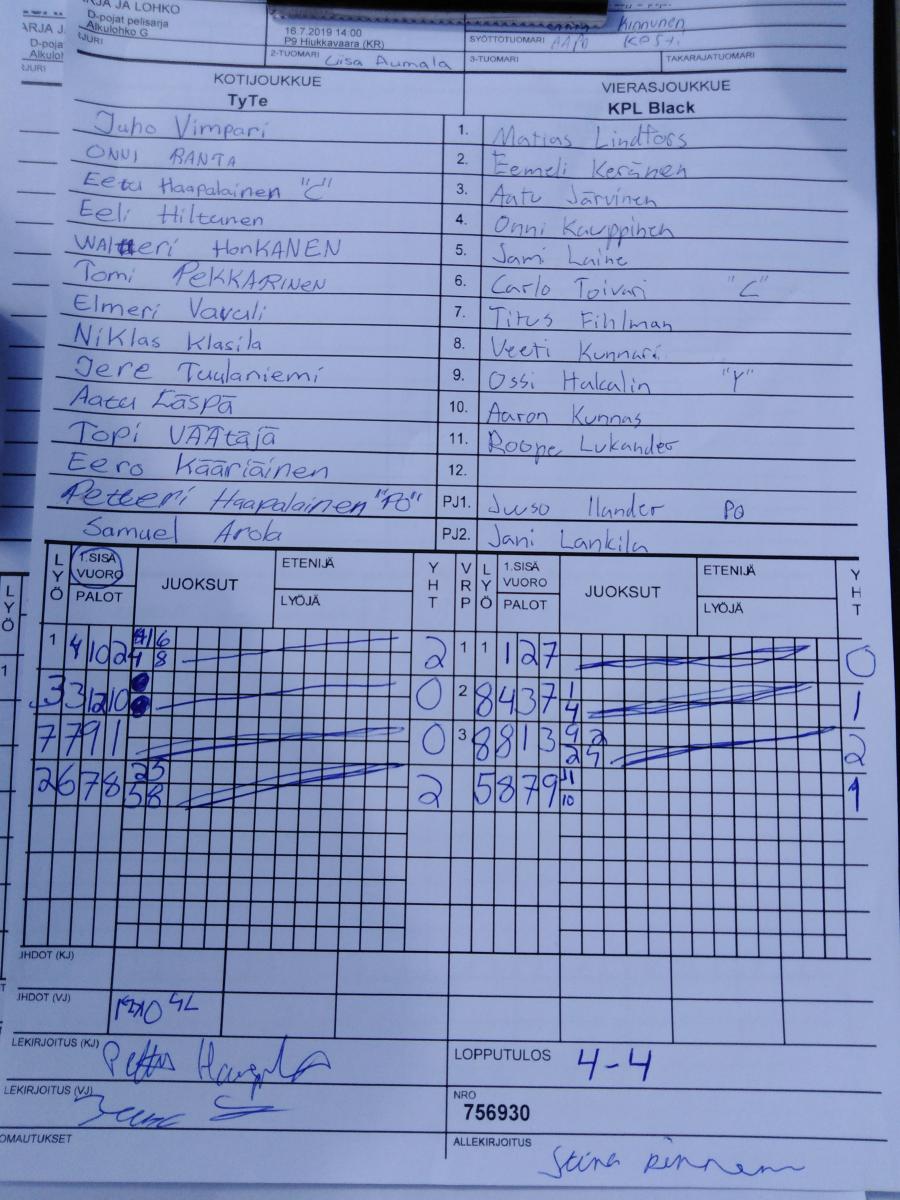 RJA JA LOHKO
D-pojat pelisarja
Alkulohko G
16.7.2019 14:00
P9 Hiukkavaara (KR)
Kinnunen
SYÖTTÖTUOMARI
2-TUOMARI Liisa Aumala
3-TUOMARI
TAKARAJATUOMARI
KOTIJOUKKUE
TyTe
VIERASJOUKKUE
KPL Black
Juho Vimpari 1. Matias Lindfors
ONNI RANTA 2. Eemeli Keränen
Eetu Haapalainen "C" 3. Aatu Järvinen
Eeli Hiltunen 4. Onni Kauppinen
WALtteri HonKANEN 5. Jami Laine
Tomi PEKKARINEN 6. Carlo Toivari "C"
Elmeri Vavuli 7. Titus Fihlman
NiKlas Klasila 8. Veeti Kunnari
Jere Tuulaniemi 9. Ossi Hakalin "Y"
Aatu Läspä 10. Aaron Kunnas
Topi VÄÄtäjä 11. Roope Lukander
Eero Kääriäinen 12.
Petteri Haapalainen "PO" PJ1. Juuso Ilander PO
Samuel Arola PJ2. Jani Lankila
LYÖ 1.SISÄ VUORO PALOT JUOKSUT ETENIJÄ LYÖJÄ YHT VRP LYÖ 1.SISÄ VUORO PALOT JUOKSUT ETENIJÄ LYÖJÄ YHT
1 4 10 2 2 1 1 1 2 7 0
3 3 12 10 0 2 8 4 3 7 1 4 1
7 7 9 1 0 3 8 8 1 3 2
2 6 7 8 25 58 2 5 8 7 9 11 10 1
JHDOT (KJ)
JHDOT (VJ)
LEKIRJOITUS (KJ)
LOPPUTULOS 4-4
LEKIRJOITUS (VJ)
NRO
756930
OMAUTUKSET
ALLEKIRJOITUS